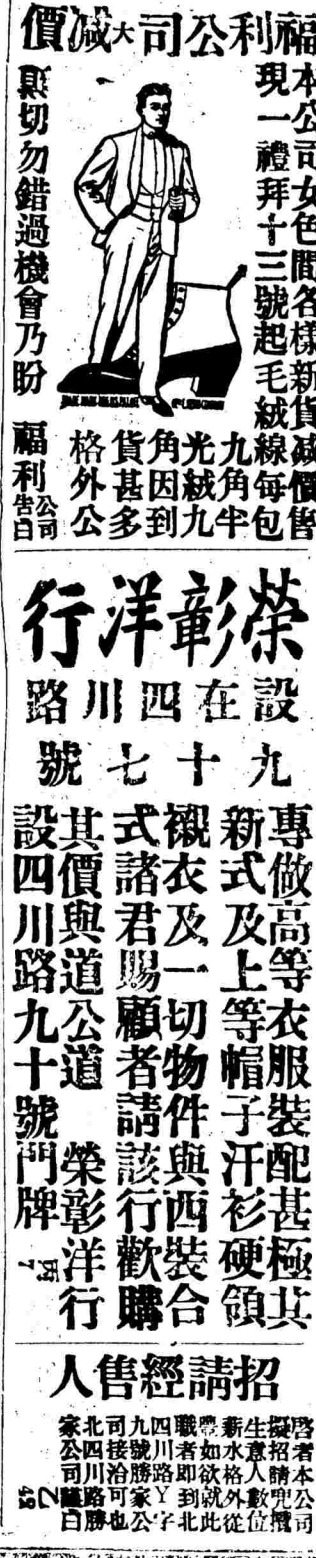 福利公司大減價
本公司女色間各樣新貨減價售
現一禮拜十三號起毛絨線每包
九角半
光絨九
角因到
貨甚多
格外公
顧切勿錯過機會乃盼
福利公司告白
榮彰洋行
設在四川路
九十七號
專做高等衣服裝配甚極其
新式及上等帽子汗衫硬領
襯衣及一切物件與西裝合
式諸君賜顧者請該行歡購
其價與道公道 榮彰洋行
設四川路九十號門牌 西7
招請經售人
啓者本公司
擬招請兜攬
生意人數位
薪水格外從
豐如欲就此
職者即到北
四川路Y字
九號勝家公
司接洽可也
北四川路勝
家公司謹白
乙